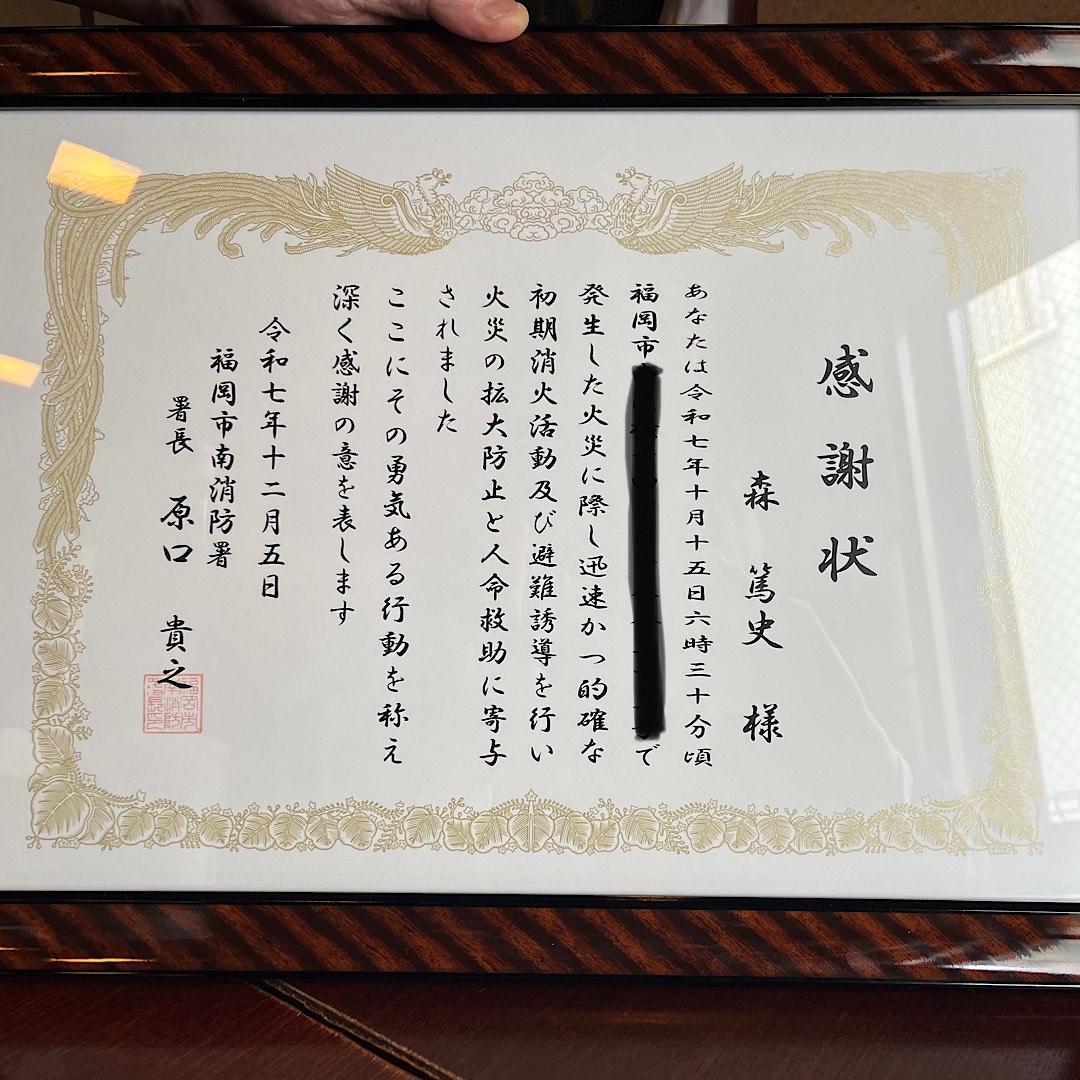 感謝状
森 篤史 様
あなたは令和七年十月十五日六時三十分頃
福岡市で
発生した火災に際し迅速かつ的確な
初期消火活動及び避難誘導を行い
火災の拡大防止と人命救助に寄与
されました
ここにその勇気ある行動を称え
深く感謝の意を表します
令和七年十二月五日
福岡市南消防署
署長 原口 貴之
福岡市南消防署長印